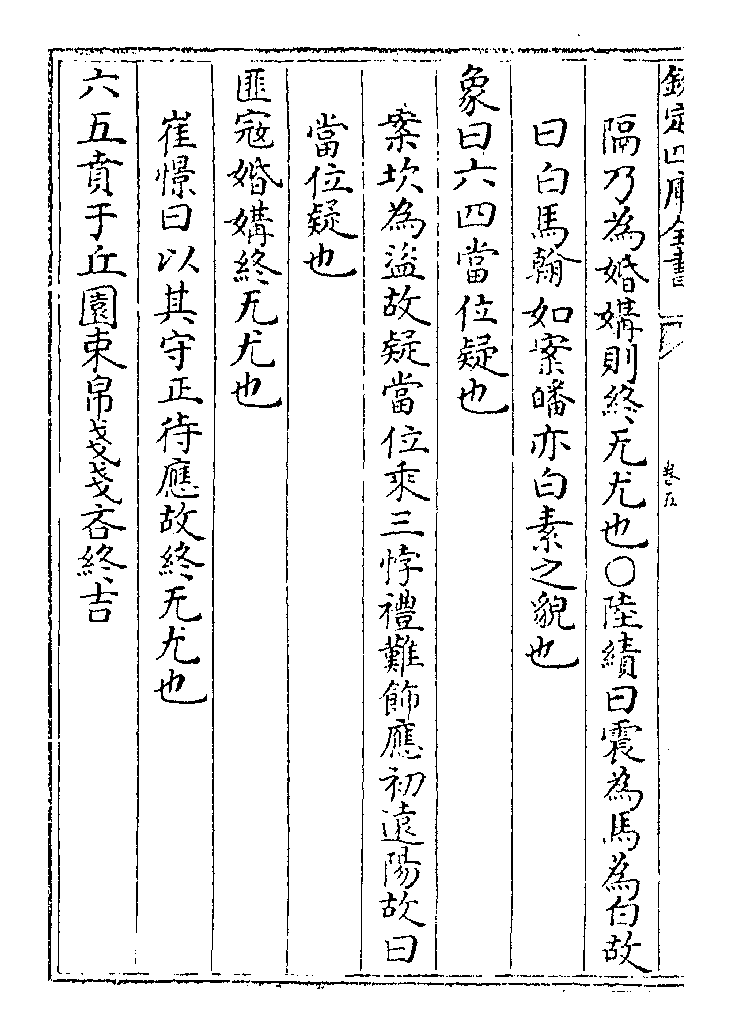 欽定四庫全書
卷五
隔乃為婚媾則終无尤也○陸績曰震為馬為白故
曰白馬翰如案皤亦白素之貌也
象曰六四當位疑也
案坎為盜故疑當位乘三悖禮難飾應初遠陽故曰
當位疑也
匪寇婚媾終无尤也
崔憬曰以其守正待應故終无尤也
六五賁于丘園束帛戔戔吝終吉